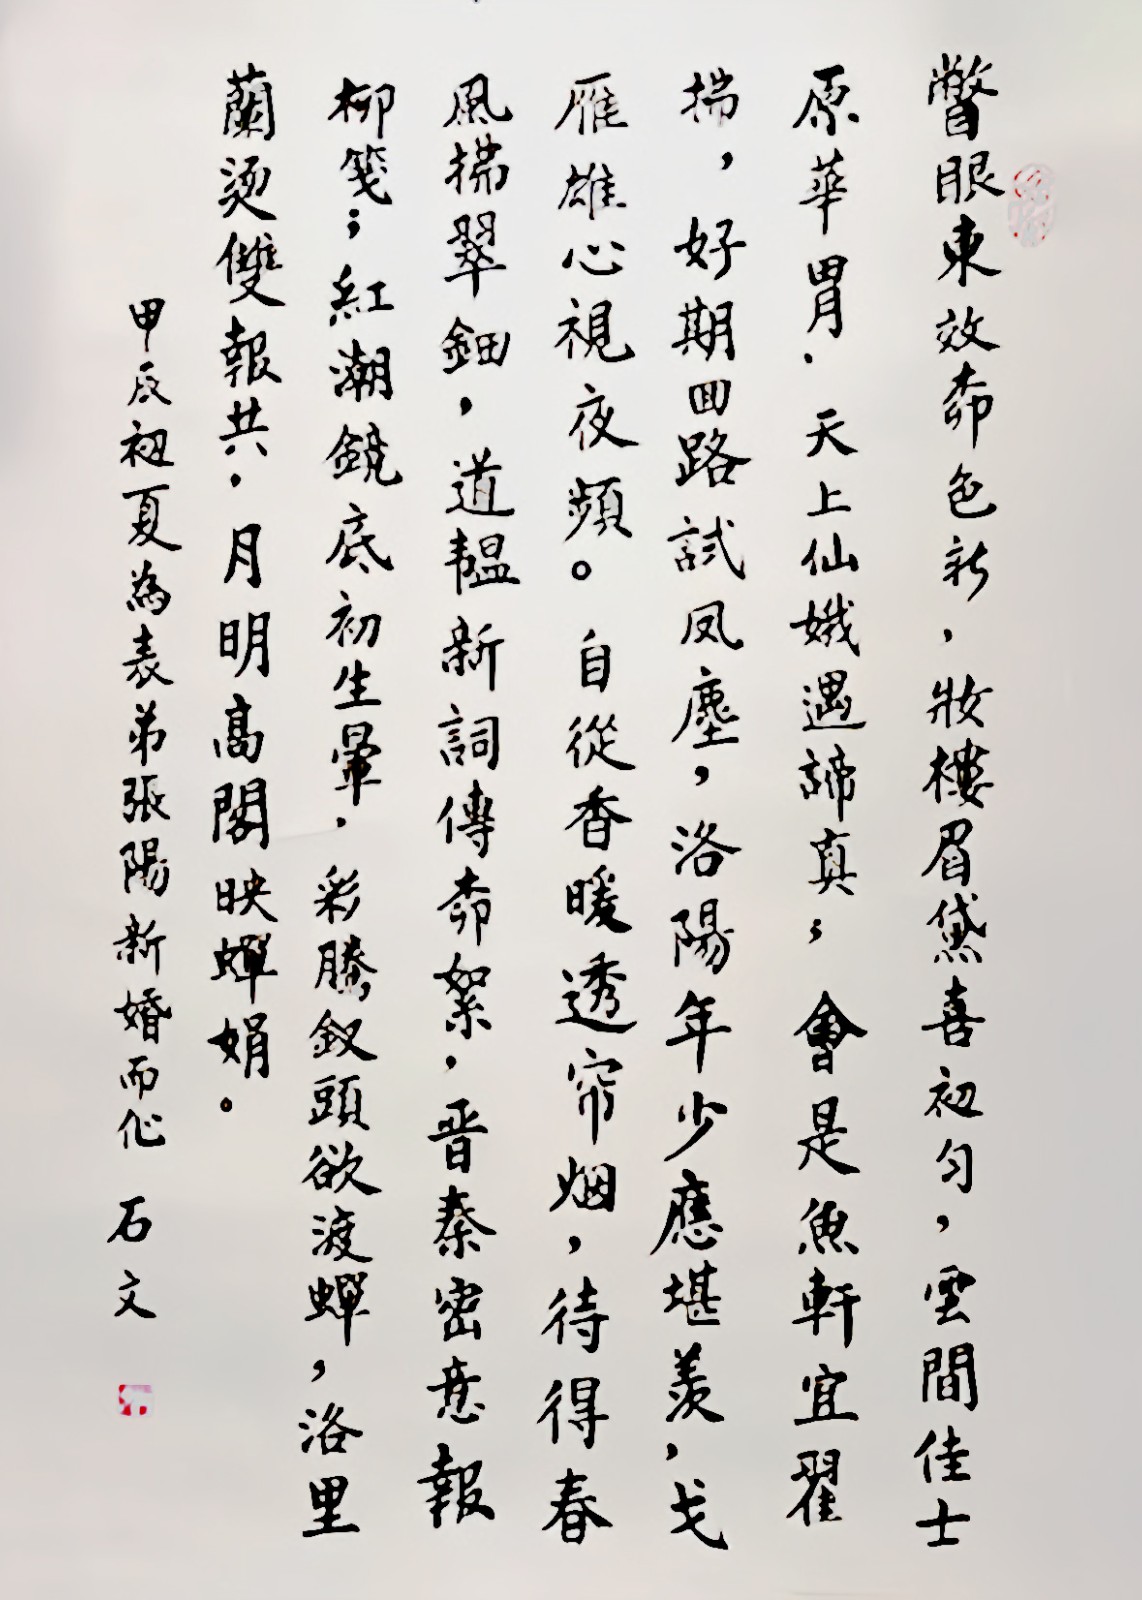 瞥眼東效柰色新，妝樓眉黛喜初勻，雲間佳士
原華胃．天上仙娥遇諦真；會是魚軒宜翟
茀，好期回路試凤塵，洛陽年少應堪羨，戈
雁雄心視夜頻。自從香暖透帘烟，待得春
風拂翠鈿，道韞新詞傳柰絮，晋秦密意報
柳箋；紅潮鏡底初生暈，彩勝釵頭欲渡蟬，洛里
蘭燙雙報共，月明高閣映蟬娟。
甲辰初夏為表弟張陽新婚而作 石文